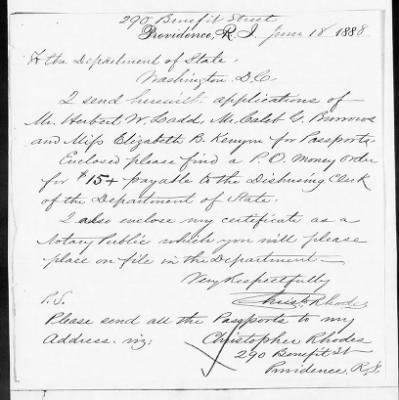 290 Benefit Street
Providence, R.I. June 18 1888
To the Department of State.
Washington D.C.
I send herewith applications of
Mr. Herbert W. Ladd. Mr. Caleb G. Burrows
and Miss Elizabeth B. Kenyon for Passports
Enclosed please find a P.O. Money order
for $15 payable to the Disbursing Clerk
of the Department of State.
I also enclose my certificate as a
Notary Public which you will please
place on file in the Department—
Very Respectfully
Christ. Rhodes
P.S.
Please send all the Passports to my
Address. viz: Christopher Rhodes
290 Benefit St
Providence, R.I.